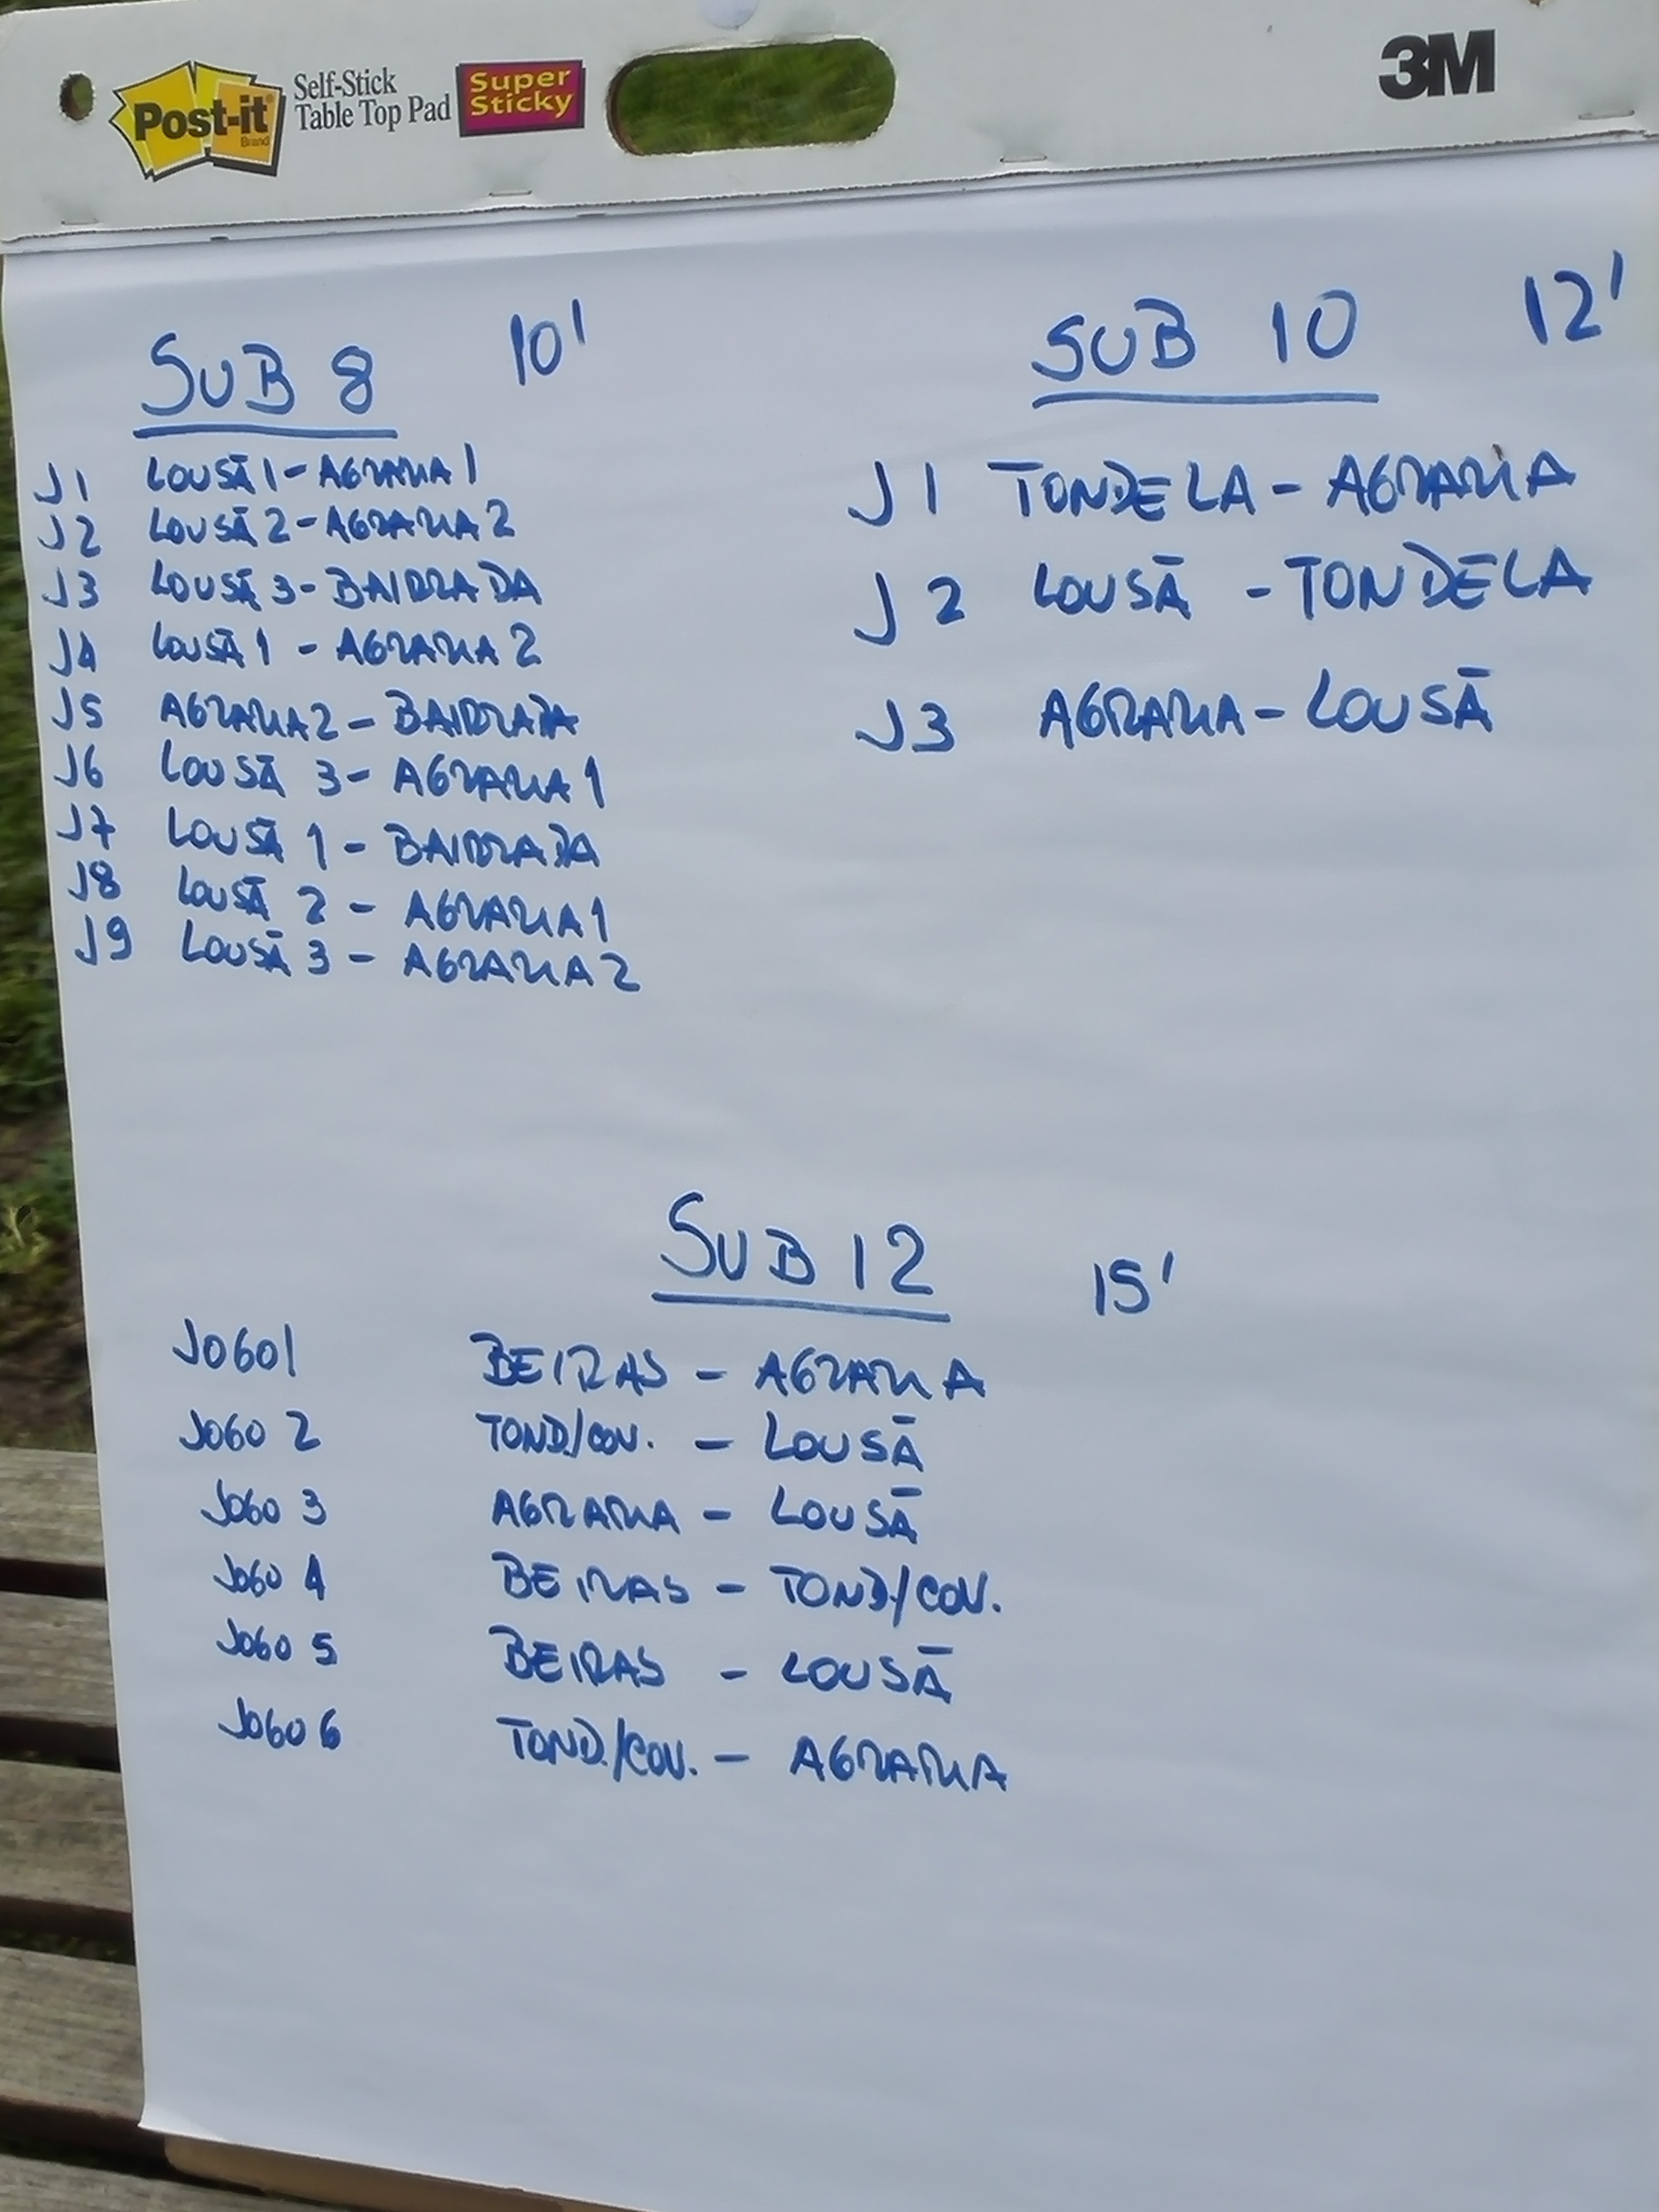 Post-it
Brand
Self-Stick
Table Top Pad
Super
Sticky
3M
SUB 8 10'
J1 LOUSÃ 1 - AGRARIA 1
J2 LOUSÃ 2 - AGRARIA 2
J3 LOUSÃ 3 - BAIRRADA
J4 LOUSÃ 1 - AGRARIA 2
J5 AGRARIA 2 - BAIRRADA
J6 LOUSÃ 3 - AGRARIA 1
J7 LOUSÃ 1 - BAIRRADA
J8 LOUSÃ 2 - AGRARIA 1
J9 LOUSÃ 3 - AGRARIA 2
SUB 10 12'
J1 TONDELA - AGRARIA
J2 LOUSÃ - TONDELA
J3 AGRARIA - LOUSÃ
SUB 12 15'
JOGO 1 BEIRAS - AGRARIA
JOGO 2 TOND./COV. - LOUSÃ
JOGO 3 AGRARIA - LOUSÃ
JOGO 4 BEIRAS - TOND./COV.
JOGO 5 BEIRAS - LOUSÃ
JOGO 6 TOND./COV. - AGRARIA